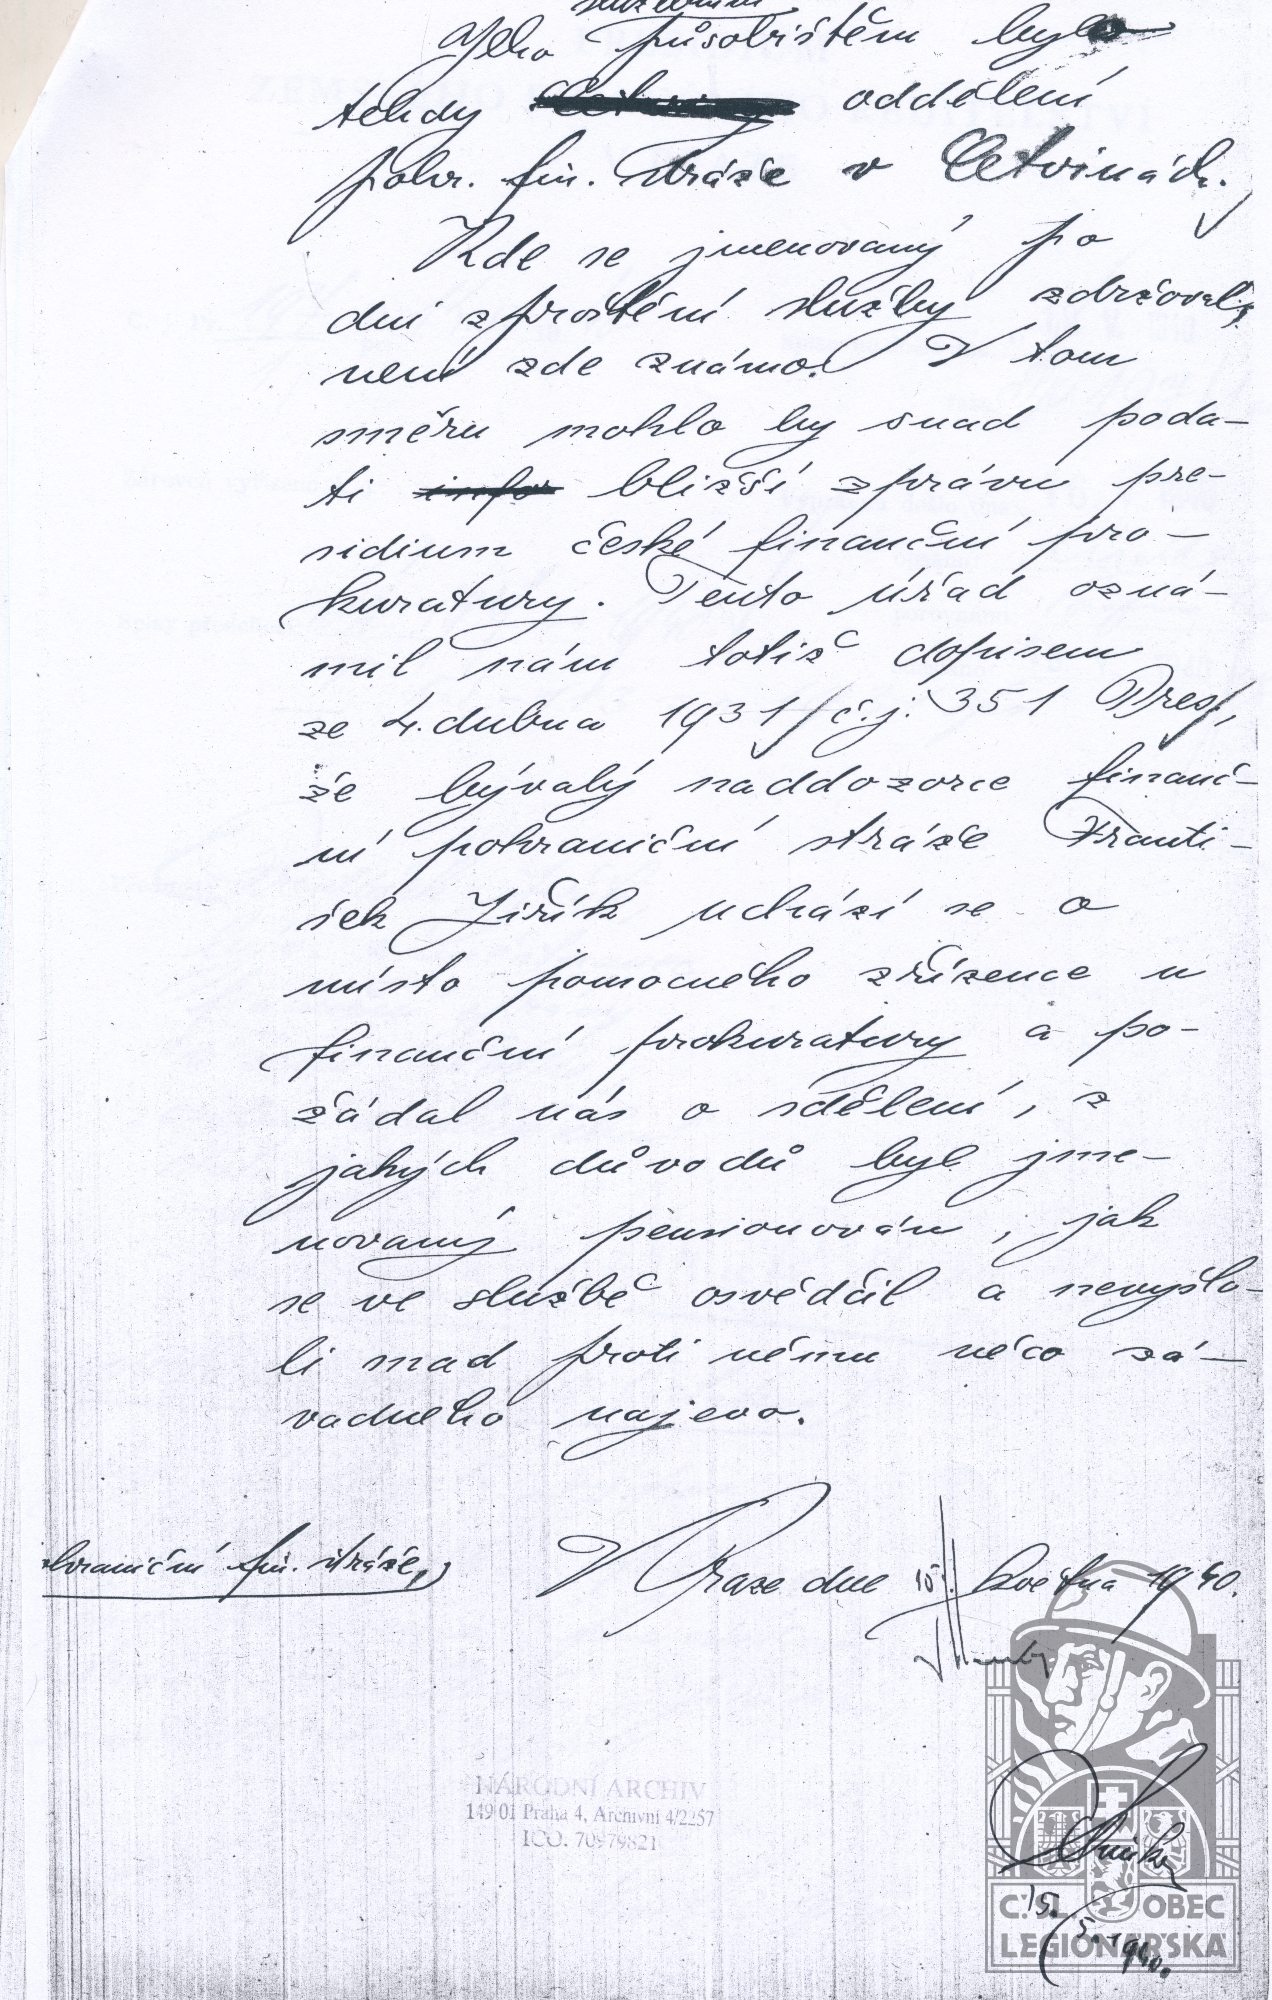 služebním
Jeho působištěm bylo
tehdy oddělení
pohr. fin. stráže v Cetvinách.
Kde se jmenovaný po
dni zproštění služby zdržoval,
není zde známo. V tom
směru mohlo by snad poda-
ti infor bližší zprávu pre-
sidium české finanční pro-
kuratury. Tento úřad ozná-
mil nám totiž dopisem
ze 4. dubna 1931/č.j. 351 Pres/,
že bývalý naddozorce finanč-
ní pohraniční stráže Franti-
šek Jiřík uchází se o
místo pomocného zřízence u
finanční prokuratury a po-
žádal nás o sdělení, z
jakých důvodů byl jme-
novaný pensionován, jak
se ve službě osvědčil a nevyšlo-
li snad proti němu něco zá-
vadného najevo.
V Praze dne 15. května 1940.
ohraniční fin. stráže,
NÁRODNÍ ARCHIV
149 01 Praha 4, Archivní 4/2257
IČO: 70979821
15.
5. 1940.
Č.SL. OBEC
LEGIONÁŘSKÁ